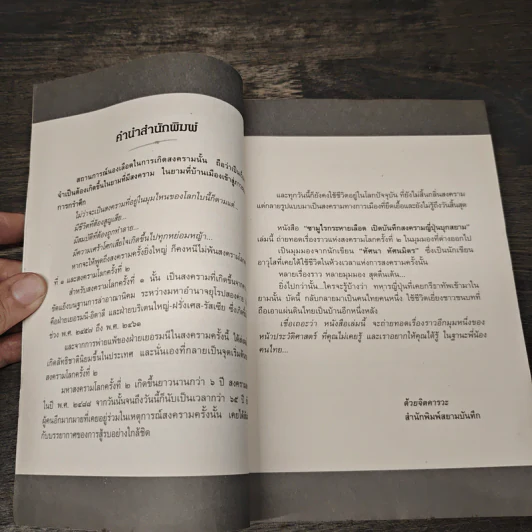 คำนำสำนักพิมพ์
สถานการณ์นองเลือดในการเกิดสงครามนั้น ถือว่าเป็น
จำเป็นต้องเกิดขึ้นในยามที่มีสงคราม ในยามที่บ้านเมืองเข้าสู่
การรบราฆ่า
ไม่ว่าจะเป็นสงครามที่อยู่ในมุมไหนของโลกใบนี้ก็ตามแต่...
มีชีวิตที่ต้องสูญเสีย...
มีสมบัติที่ต้องถูกทำลาย...
มีความเศร้าโศกเสียใจเกิดขึ้นไปทุกหย่อมหญ้า...
หากจะให้พูดถึงสงครามครั้งยิ่งใหญ่ ก็คงหนีไม่พ้นสงครามโลก
ที่ ๑ และสงครามโลกครั้งที่ ๒
สำหรับสงครามโลกครั้งที่ ๑ นั้น เป็นสงครามที่เกิดขึ้นจาก
ขัดแย้งบนฐานการล่าอาณานิคม ระหว่างมหาอำนาจยุโรปสองค่าย
คือฝ่ายเยอรมนี-อิตาลี และฝ่ายบริเตนใหญ่-ฝรั่งเศส-รัสเซีย ซึ่งเกิดขึ้น
ช่วง พ.ศ. ๒๔๕๗ ถึง พ.ศ. ๒๔๖๑
และจากการพ่ายแพ้ของเยอรมนีในสงครามครั้งนี้ ได้ส่งผล
เกิดลัทธิชาตินิยมขึ้นในประเทศ และนั่นเองที่กลายเป็นจุดเริ่มต้น
สงครามโลกครั้งที่ ๒
มหาสงครามโลกครั้งที่ ๒ เกิดขึ้นยาวนานกว่า ๖ ปี สงคราม
ในปี พ.ศ. ๒๔๘๘ จากวันนั้นจนถึงวันนี้ก็นับเป็นเวลากว่า ๖๕ ปี
ผู้คนอีกมากมายที่เคยอยู่ร่วมในเหตุการณ์สงครามครั้งนั้น เคยได้
กับบรรยากาศของการสู้รบอย่างใกล้ชิด
และทุกวันนี้ก็ยังคงใช้ชีวิตอยู่ในโลกปัจจุบัน ที่ยังไม่สิ้นกลิ่นสงคราม
แค่กลายรูปแบบมาเป็นสงครามทางการเมืองที่ยืดเยื้อและยังไม่รู้ถึงวันสิ้นสุด
หนังสือ "ซามูไรกระหายเลือด เปิดบันทึกสงครามญี่ปุ่นบุกสยาม"
เล่มนี้ ถ่ายทอดเรื่องราวแห่งสงครามโลกครั้งที่ ๒ ในมุมมองที่ต่างออกไป
เป็นมุมมองจากนักเขียน "พัฒนา พัฒนมิตร" ซึ่งเป็นนักเขียน
อาวุโสที่เคยได้ใช้ชีวิตในห้วงเวลาแห่งการสงครามครั้งนั้น
หลายเรื่องราว หลายมุมมอง สุดตื่นเต้น...
ยิ่งไปกว่านั้น...ใครจะรู้บ้างว่า ทหารญี่ปุ่นที่เคยกรีธาทัพเข้ามาใน
ยามนั้น บัดนี้ กลับกลายมาเป็นคนไทยคนหนึ่ง ใช้ชีวิตเยี่ยงชาวชนบทที่
ถือเอาแผ่นดินไทยเป็นบ้านอีกหนึ่งหลัง
เชื่อเถอะว่า หนังสือเล่มนี้ จะถ่ายทอดเรื่องราวอีกมุมหนึ่งของ
หน้าประวัติศาสตร์ ที่คุณไม่เคยรู้ และเราอยากให้คุณได้รู้ ในฐานะพี่น้อง
คนไทย...
ด้วยจิตคารวะ
สำนักพิมพ์สยามบันทึก